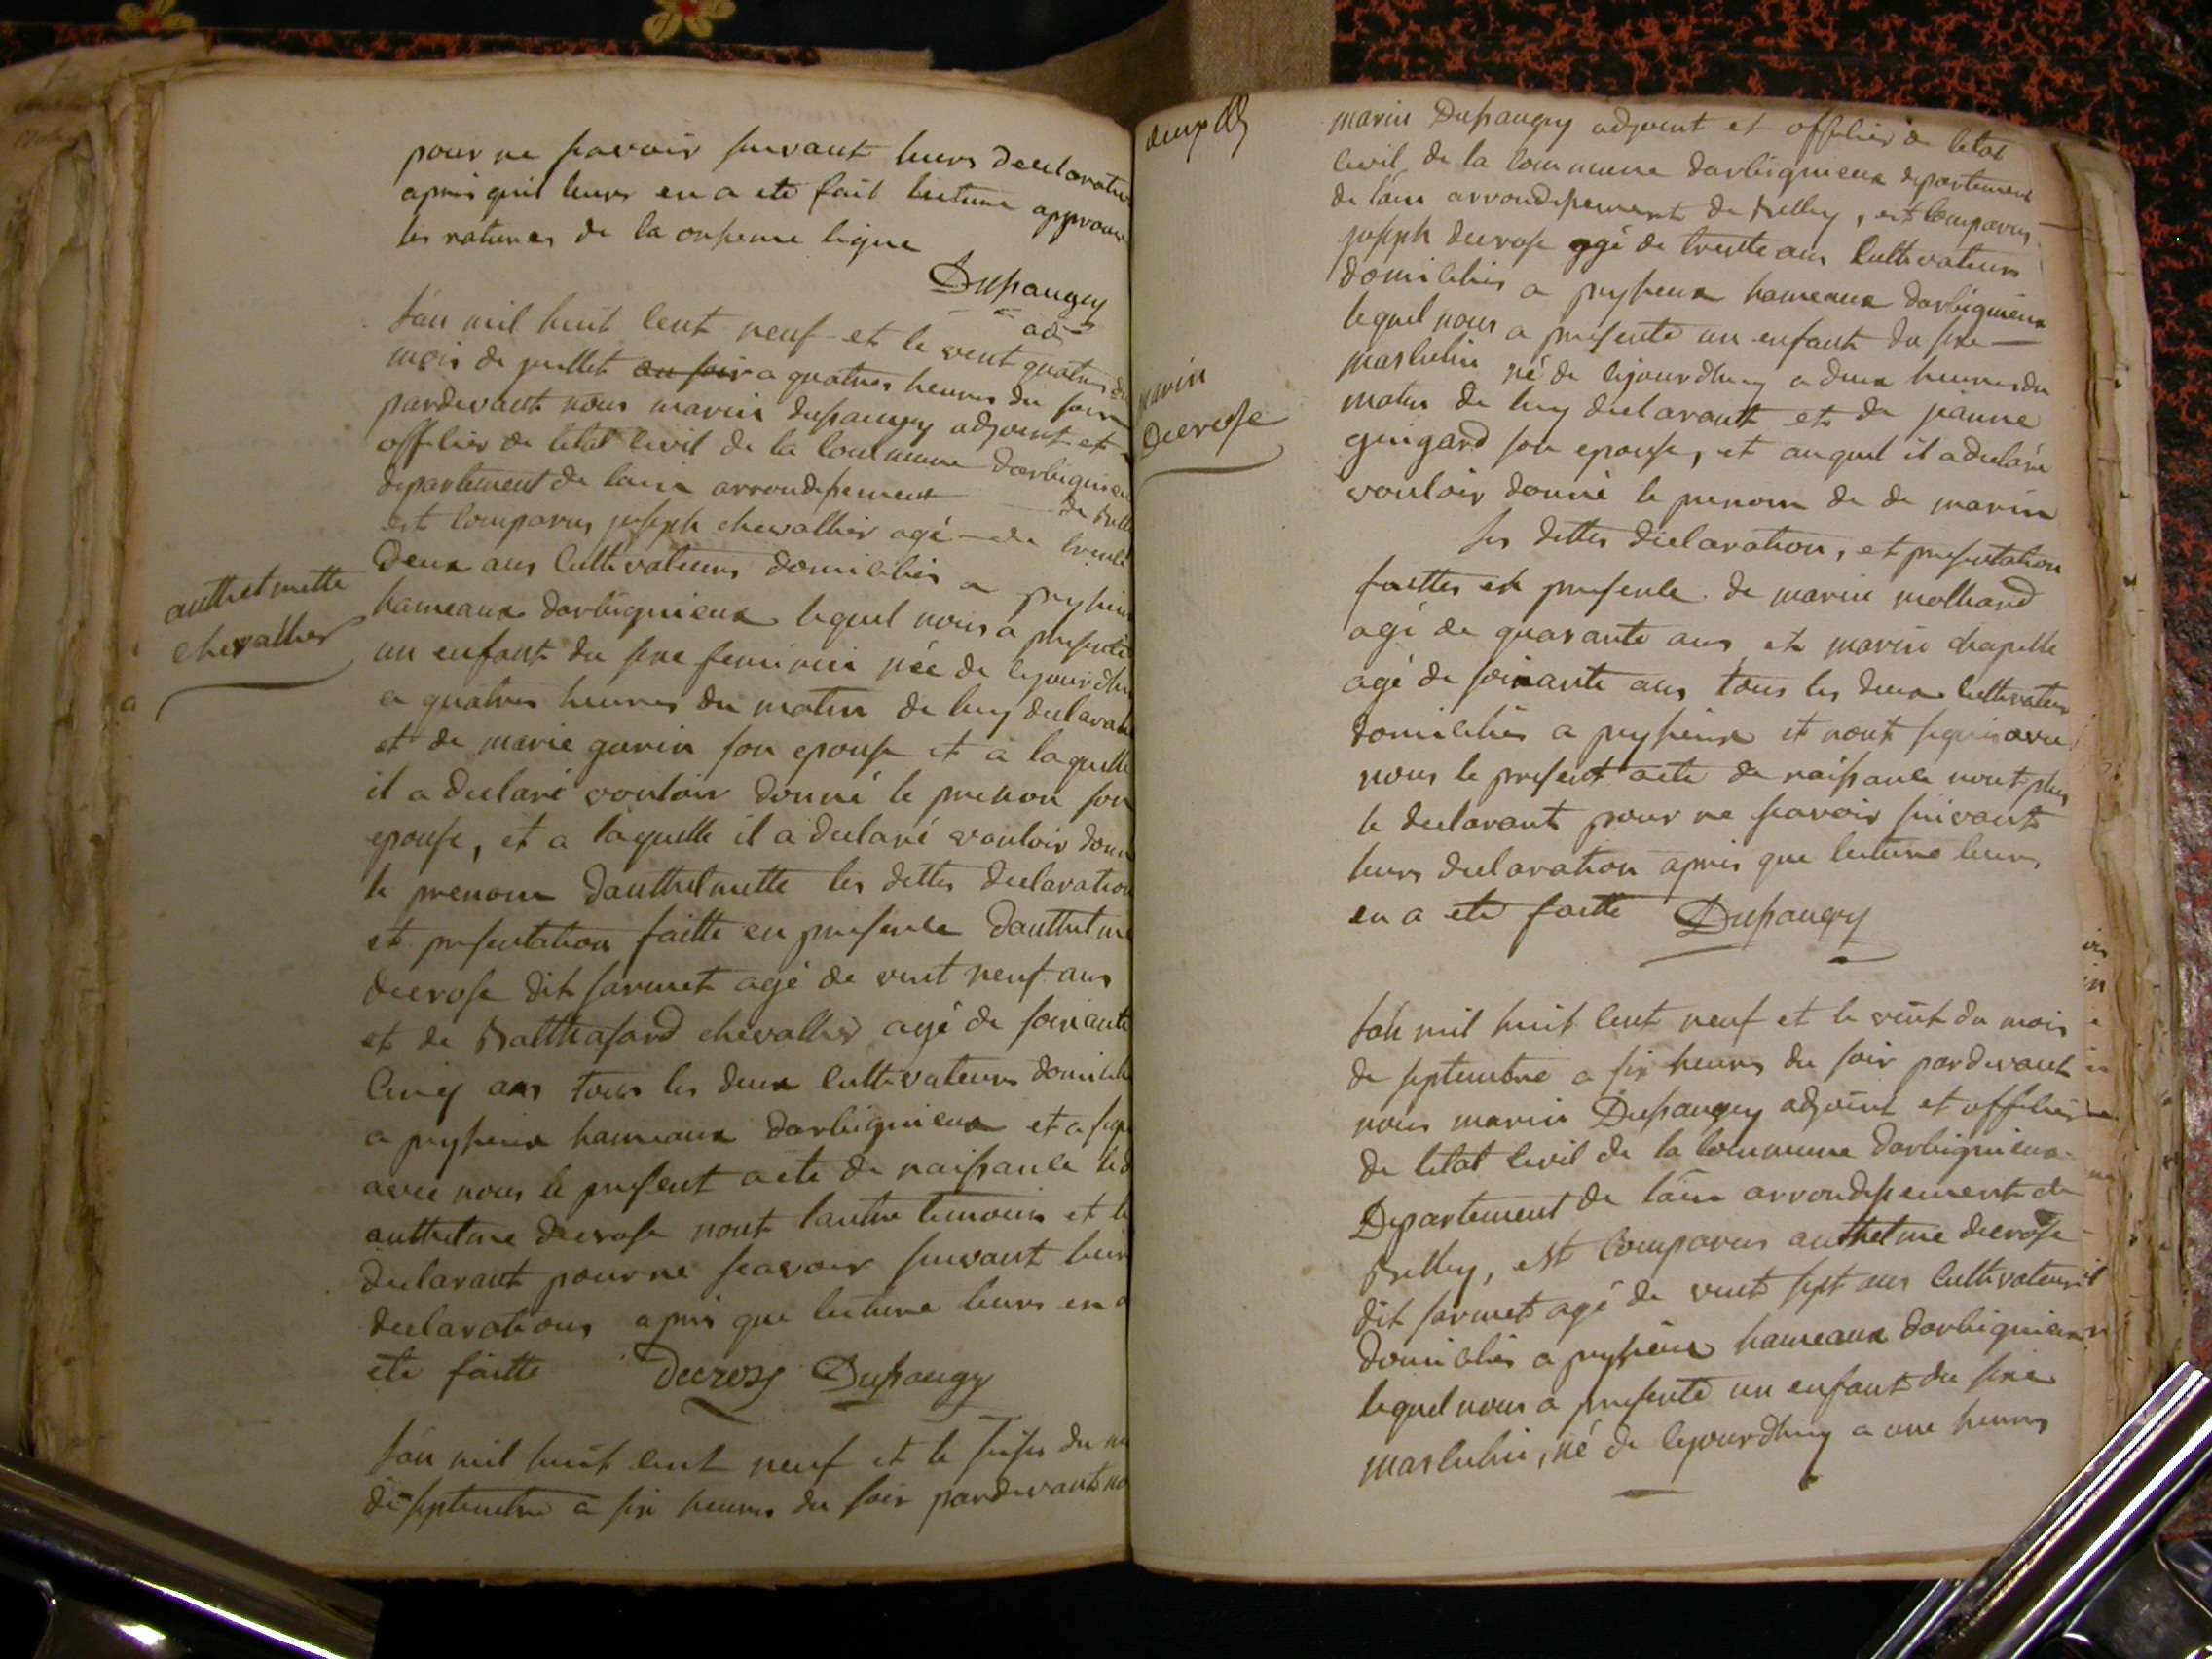 pour ne scavoir suivant leurs declaration
apres quil leurs en a ete fait lecture approuve
les ratures de la onsieme ligne
Dupaugey
adj
Lan mil huit cent neuf et le vent quatres du
mois de juillet au soir a quatres heures du soir
pardevant nous marin dupaugey adjoint et
officier de letat civil de la commune darbignieu
departement de lain arrondissement de Belle
est comparus joseph chevallier agé de trente
Deux ans cultivateurs domiciliés a peysieux
hameaux darbignieux lequel nous a presenté
un enfant du sexe feminin née de cejourdhui
a quatres heures du matin de luy declarant
et de marie gurin son epouse et a laquelle
il a declaré vouloir donné le prenon son
epouse, et a laquelle il a declaré vouloir donn
le prenom dauthelmette les dittes declaration
et presentation faitte en presence dauthelme
decrose dit sarmet agé de vent neuf ans
et de Balthasard chevallier agé de soixante
cinq ans tous les deux cultivateurs domicilie
a peysieux hameaux darbignieux et a signé
avec nous le present acte de naissance led
authelme decrose nont lautre temoin et le
declarant pour ne scavoir suivant leur
declarations apres que lecture leurs en a
ete faitte Decroze Dupaugey
authelmette
chevallier
Lan mil huit cent neuf et le seise du mo
de septembre a six heures du soir pardevant no
marin Dupaugey adjoint et officier de letat
civil de la commune darbignieux departement
de lain arrondissement de Belley, est comparus
joseph decrose agé de trentte ans cultivateurs
domiciliés a peysieux hameaux darbignieux
lequel nous a presenté un enfant du sexe
masculin né de cejourdhuy a deux heures du
matin de luy declarant et de jeanne
guigard son epouse, et auquel il a declaré
vouloir donné le prenom de de marin
les dittes declaration, et presentation
faittes en presence de marin molliard
agé de quarante ans et marin chapelle
agé de soixante ans tous les deux cultivateur
domiciliés a peysieux et nont signés avec
nous le present acte de naissance nont plus
le declarant pour ne scavoir suivant
leurs declaration apres que lecture leurs
en a ete faitte Dupaugey
marin
decrose
Lan mil huit cent neuf et le vent du mois
de septembre a six heures du soir pardevant
nous marin Dupaugey adjoint et officier
de letat civil de la commune darbignieux
Departement de lain arrondissement de
Belley, est comparus authelme decrose
dit sarmet agé de vent sept ans cultivateurs
domiciliés a peysieux hameaux darbignieux
lequel nous a presenté un enfant du sexe
masculin, né de cejourdhuy a une heures